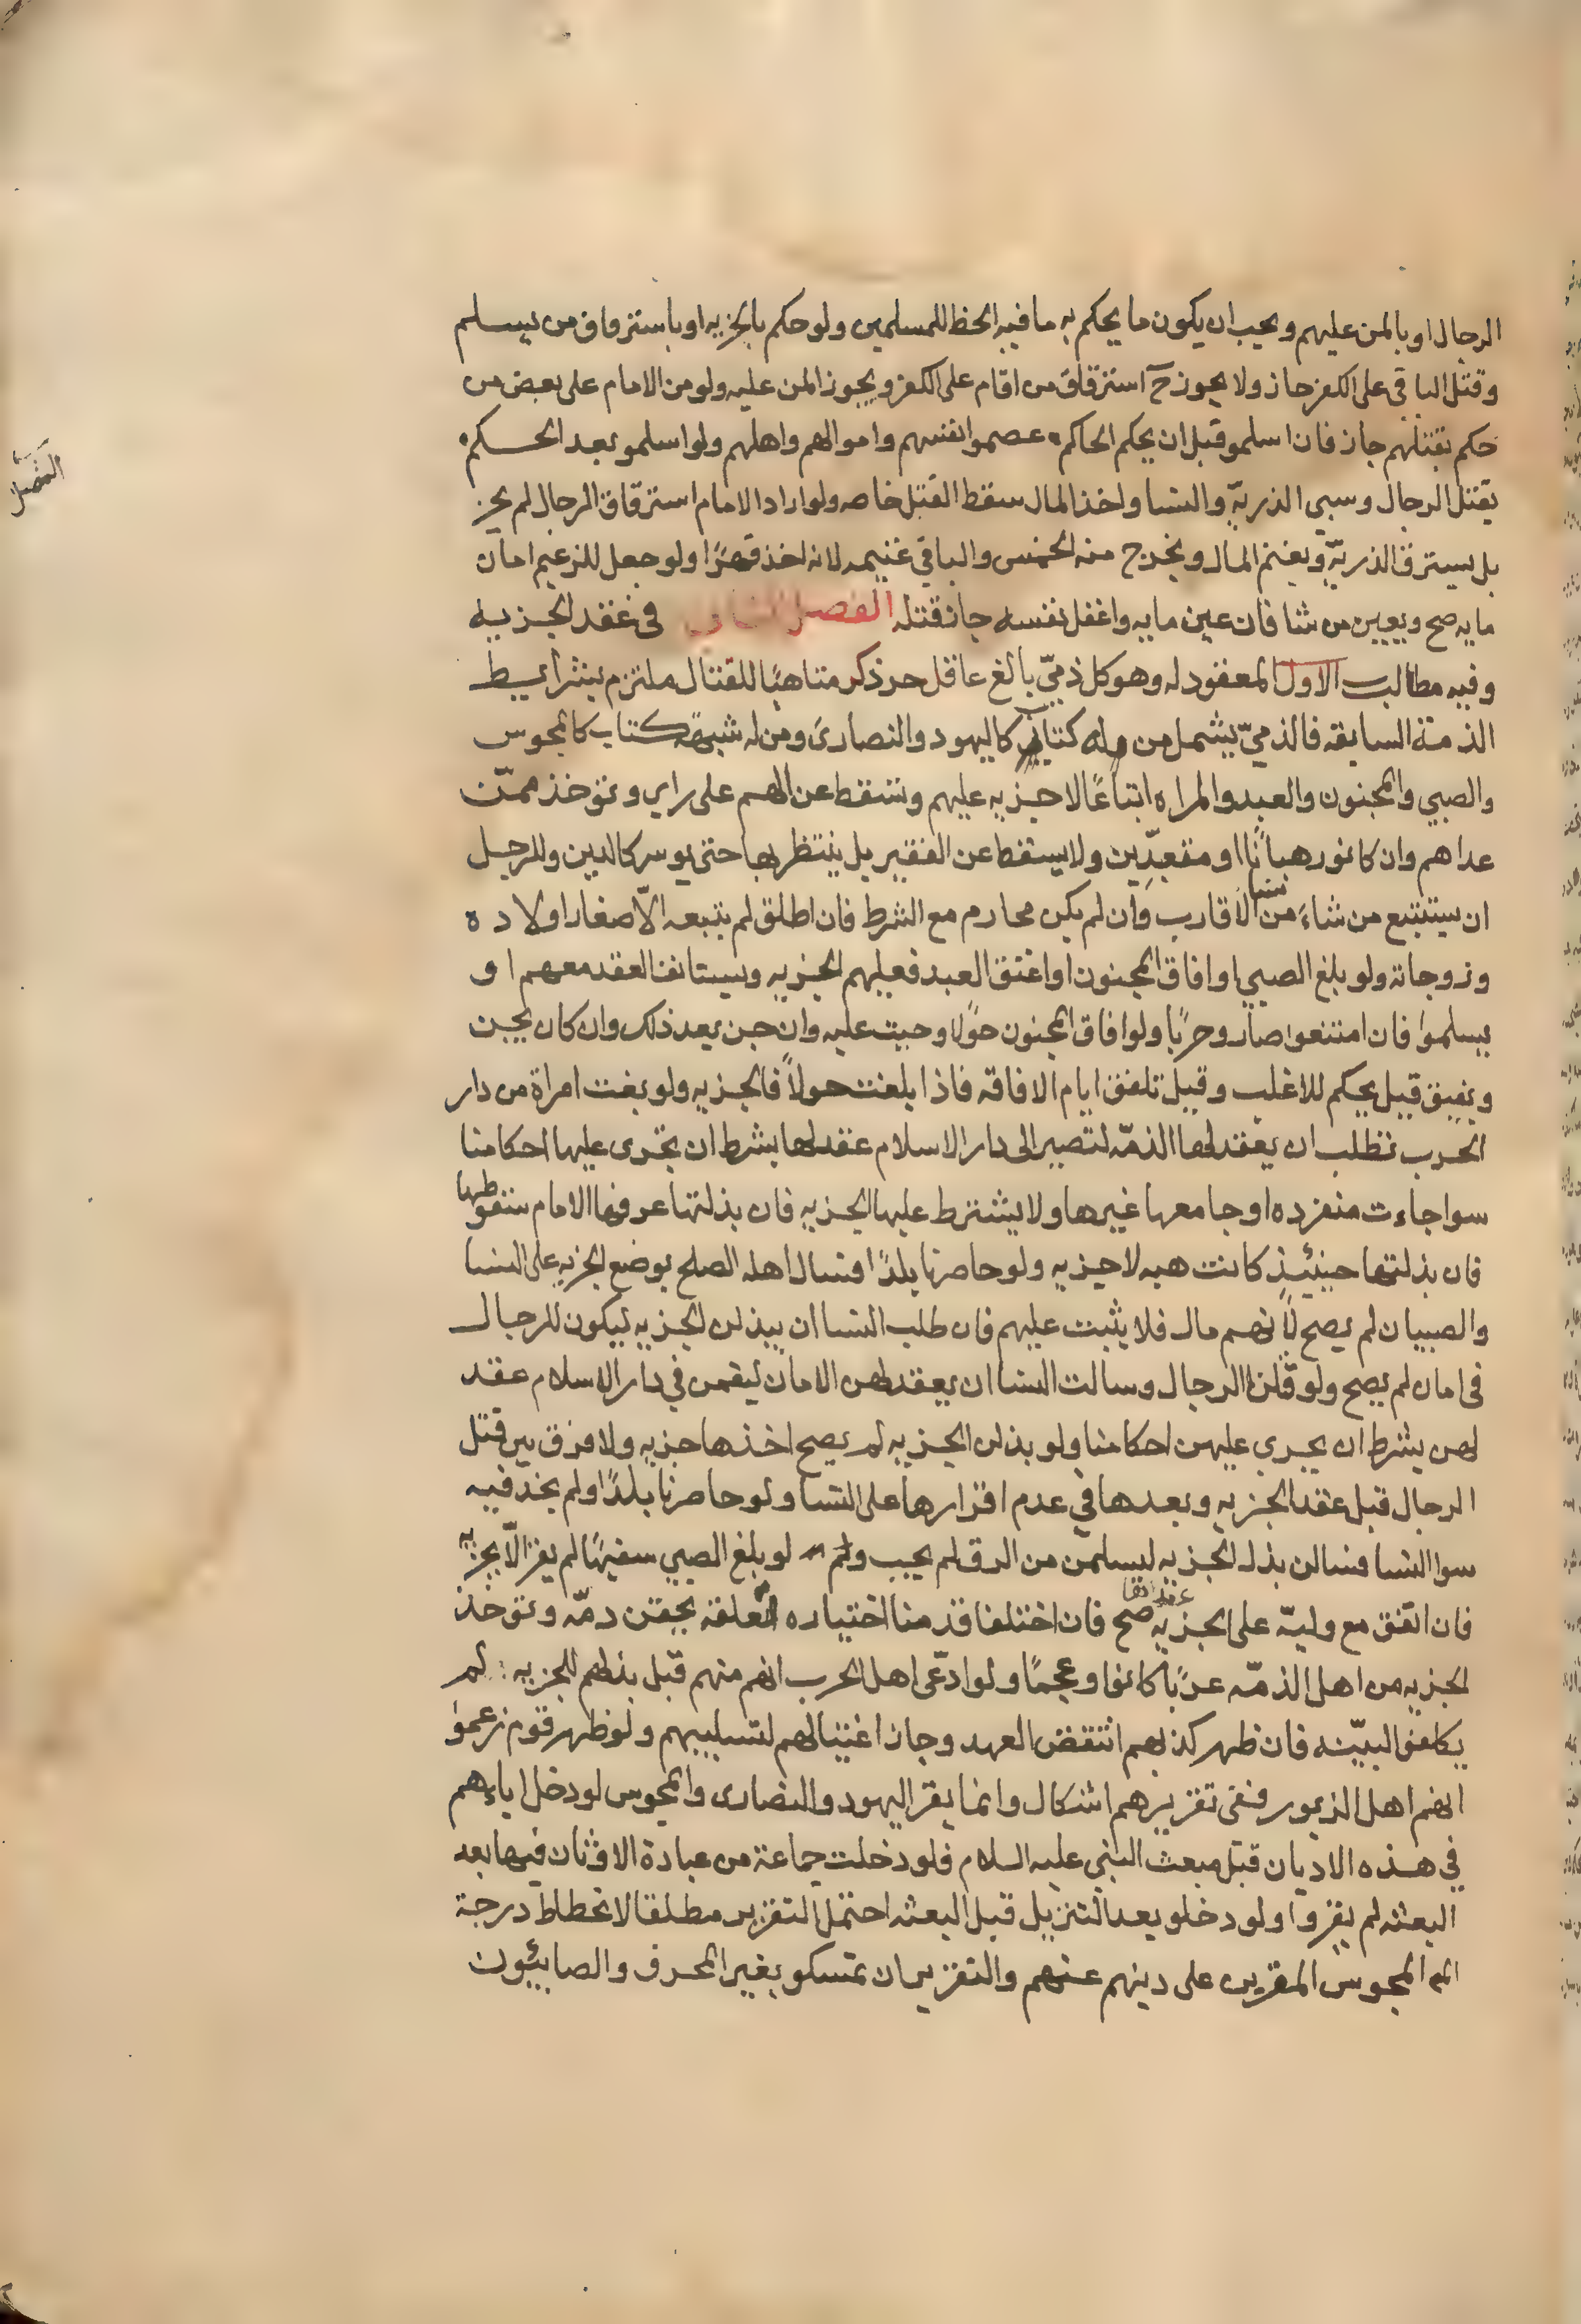 الرجال او بالمن عليهم ويجب ان يكون ما يحكم به ما فيه الحظ للمسلمين ولو حكم بالجزيه او باسترقاق من يسلم
وقتل الباقي على الكفر جاز ولا يجوز ح استرقاق من اقام على الكفر ويجوز المن عليه ولو من الامام على بعض من
حكم بقتلهم جاز فان اسلمو قبل ان يحكم الحاكم عصموا انفسهم واموالهم واهلهم ولو اسلمو بعد الحكم
بقتل الرجال وسبي الذريّة والنسا واخذ المال سقط القتل خاصه ولو اراد الامام استرقاق الرجال لم يجز
بل يسترق الذريّة ويغنم المال ويخرج منه الخمس والباقي غنيمه لانه اخذ قهرًا ولو جعل للزعيم امان
مايه صح ويعيين من شا فان عين مايه واغفل نفسه جاز قتله الفصل الثاني في عقد الجزيه
وفيه مطالب الاول المعقود له وهو كل ذميّ بالغ عاقل حر ذكر متاهبًا للقتال ملتزم بشرايط
الذمة السابقه فالذميّ يشمل من له كتاب كاليهود والنصارى ومن له شبهة كتاب كالمجوس
والصبي والمجنون والعبد والمراه اتباعًا لا جزيه عليهم وتسقط عن الهم على راي وتؤخذ ممّن
عداهم وان كانو رهبانًا او مقعدِين ولا يسقط عن الفقير بل ينتظر بها حتى يوسر كالدين وللرجل
ان يستتبع من شاءَ من نسا الاقارب وان لم يكن محارم مع الشرط فان اطلق لم يتبعه الّا صغار اولاده
وزوجاته ولو بلغ الصبي او افاق المجنون او اعتق العبد فعليهم الجزيه ويستانف العقد معهم او
يسلموا فان امتنعوا صارو حربًا ولو افاق المجنون حولًا وجبت عليه وان جن بعد ذلك وان كان يجن
ويفيق قيل يحكم للاغلب وقيل تلفق ايام الافاقه فاذا بلغت حولاً فالجزيه ولو بعت امراة من دار
الحرب تطلب ان يعقد لها الذمّه لتصير الى دار الاسلام عقد لها بشرط ان تجرى عليها احكامنا
سوا جاءت منفرده او جا معها غيرها ولا يشترط عليها الجزيه فان بذلتها عرفها الامام سقوطها
فان بذلتها حينئذٍ كانت هبه لا جزيه ولو حاصرنا بلدًا فسال اهله الصلح بوضع الجزيه على النسا
والصبيان لم يصح لانهم مال فلا يثبت عليهم فان طلب النسا ان يبذلن الجزيه ليكون للرجال
في امان لم يصح ولو قتلنا الرجال وسالت النسا ان يعقد لهن الامان ليقمن في دار الاسلام عقد
لهن بشرط ان يجري عليهن احكامنا ولو بذلن الجزيه لم يصح اخذها جزيه ولا فرق بين قتل
الرجال قبل عقد الجزيه وبعدها في عدم اقرارها على النسا ولو حاصرنا بلدًا ولم نجد فيه
سوا النسا فسالن بذل الجزيه ليسلمن من الرق لم يجب ولو بلغ الصبي سفيهًا لم يقر الّا بجزيه
فان اتفق مع وليّه على الجزيه عقداها صح فان اختلفا قدمنا اختياره لتعلقه بحقن دمّه وتؤخذ
الجزيه من اهل الذمّه عربًا كانوا وعجمًا ولو ادّعى اهل الحرب انهم منهم قبل بذلهم للجزيه لم
يكلفوا البيّنه فان ظهر كذبهم انتقض العهد وجاز اغتيالهم لتسلبيهم ولو ظهر قوم زعموا
انهم اهل الزبور ففي تقريرهم اشكال وانما يقر اليهود والنصارى والمجوس لو دخل اباءهم
في هذه الاديان قبل مبعث النبي عليه السلام فلو دخلت جماعة من عبادة الاوثان فيها بعد
البعثه لم يقروا ولو دخلو بعد التنزيل قبل البعثه احتمل التقرير مطلقا لانحطاط درجة
المجوس المقرين على دينهم عنهم والتقرير ان تمسكو بغير المحرف والصابئون